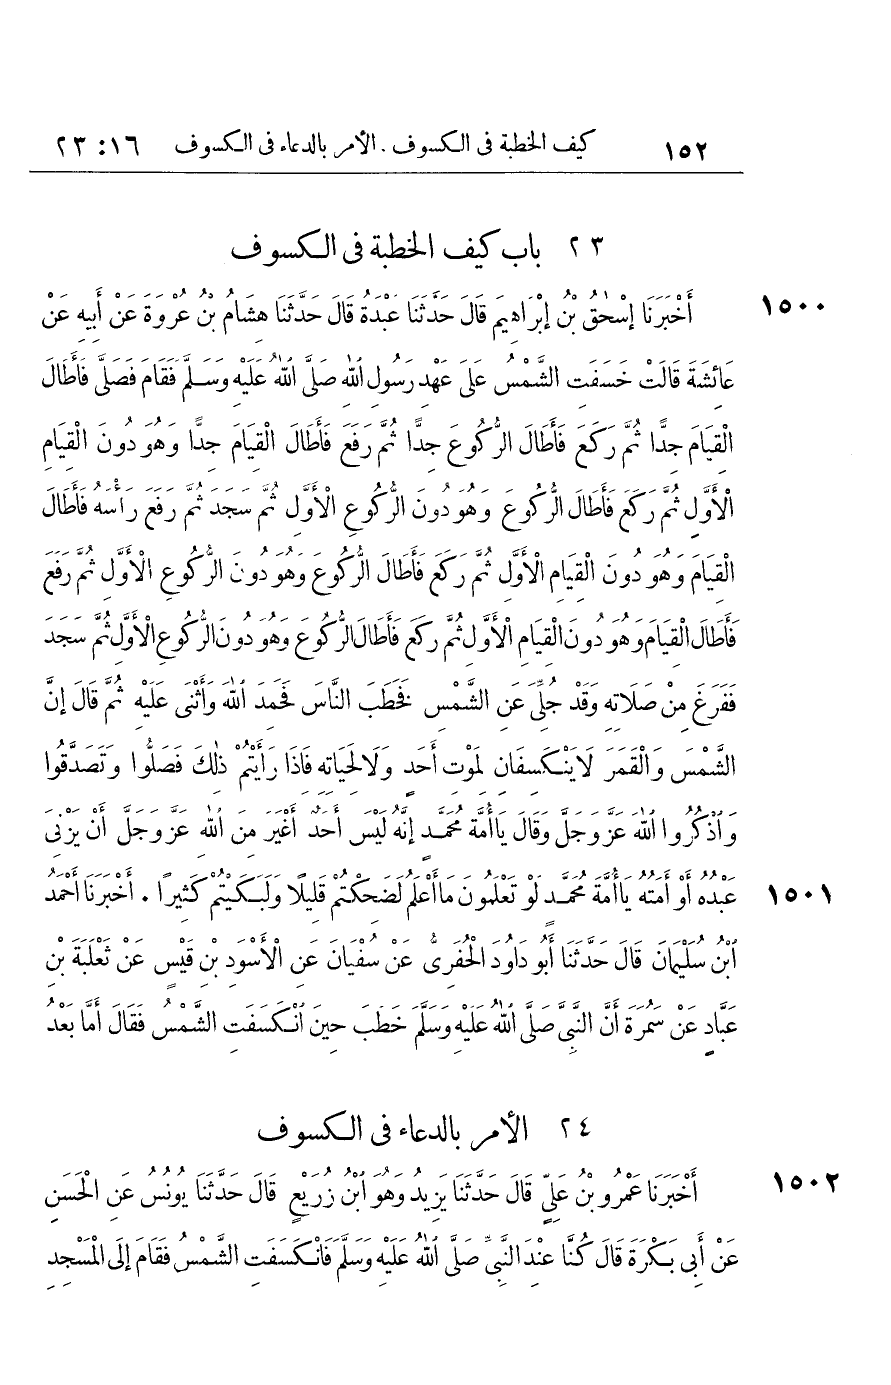 ١٥٢ كيف الخطبة فى الكسوف . الأمر بالدعاء فى الكسوف ١٦: ٢٣
٢٣ باب كيف الخطبة فى الكسوف
١٥٠٠ أَخْبَرَنَا إِسْحٰقُ بْنُ إِبْرَاهِيمَ قَالَ حَدَّثَنَا عَبْدَةُ قَالَ حَدَّثَنَا هِشَامُ بْنُ عُرْوَةَ عَنْ أَبِيهِ عَنْ
عَائِشَةَ قَالَتْ خَسَفَتِ الشَّمْسُ عَلَى عَهْدِ رَسُولِ اللهِ صَلَّى اللهُ عَلَيْهِ وَسَلَّمَ فَقَامَ فَصَلَّى فَأَطَالَ
الْقِيَامَ جِدًّا ثُمَّ رَكَعَ فَأَطَالَ الرُّكُوعَ جِدًّا ثُمَّ رَفَعَ فَأَطَالَ الْقِيَامَ جِدًّا وَهُوَ دُونَ الْقِيَامِ
الْأَوَّلِ ثُمَّ رَكَعَ فَأَطَالَ الرُّكُوعَ وَهُوَ دُونَ الرُّكُوعِ الْأَوَّلِ ثُمَّ سَجَدَ ثُمَّ رَفَعَ رَأْسَهُ فَأَطَالَ
الْقِيَامَ وَهُوَ دُونَ الْقِيَامِ الْأَوَّلِ ثُمَّ رَكَعَ فَأَطَالَ الرُّكُوعَ وَهُوَ دُونَ الرُّكُوعِ الْأَوَّلِ ثُمَّ رَفَعَ
فَأَطَالَ الْقِيَامَ وَهُوَ دُونَ الْقِيَامِ الْأَوَّلِ ثُمَّ رَكَعَ فَأَطَالَ الرُّكُوعَ وَهُوَ دُونَ الرُّكُوعِ الْأَوَّلِ ثُمَّ سَجَدَ
فَفَرَغَ مِنْ صَلَاتِهِ وَقَدْ جُلِّيَ عَنِ الشَّمْسِ فَخَطَبَ النَّاسَ فَحَمِدَ اللهَ وَأَثْنَى عَلَيْهِ ثُمَّ قَالَ إِنَّ
الشَّمْسَ وَالْقَمَرَ لَا يَنْكَسِفَانِ لِمَوْتِ أَحَدٍ وَلَا لِحَيَاتِهِ فَإِذَا رَأَيْتُمْ ذٰلِكَ فَصَلُّوا وَتَصَدَّقُوا
وَاذْكُرُوا اللهَ عَزَّ وَجَلَّ وَقَالَ يَا أُمَّةَ مُحَمَّدٍ إِنَّهُ لَيْسَ أَحَدٌ أَغْيَرَ مِنَ اللهِ عَزَّ وَجَلَّ أَنْ يَزْنِىَ
عَبْدُهُ أَوْ أَمَتُهُ يَا أُمَّةَ مُحَمَّدٍ لَوْ تَعْلَمُونَ مَا أَعْلَمُ لَضَحِكْتُمْ قَلِيلًا وَلَبَكَيْتُمْ كَثِيرًا . أَخْبَرَنَا أَحْمَدُ ١٥٠١
ابْنُ سُلَيْمَانَ قَالَ حَدَّثَنَا أَبُو دَاوُدَ الْحَفَرِىُّ عَنْ سُفْيَانَ عَنِ الْأَسْوَدِ بْنِ قَيْسٍ عَنْ ثَعْلَبَةَ بْنِ
عَبَّادٍ عَنْ سَمُرَةَ أَنَّ النَّبِىَّ صَلَّى اللهُ عَلَيْهِ وَسَلَّمَ خَطَبَ حِينَ انْكَسَفَتِ الشَّمْسُ فَقَالَ أَمَّا بَعْدُ
٢٤ الأمر بالدعاء فى الكسوف
١٥٠٢ أَخْبَرَنَا عَمْرُو بْنُ عَلِىٍّ قَالَ حَدَّثَنَا يَزِيدُ وَهُوَ ابْنُ زُرَيْعٍ قَالَ حَدَّثَنَا يُونُسُ عَنِ الْحَسَنِ
عَنْ أَبِى بَكْرَةَ قَالَ كُنَّا عِنْدَ النَّبِىِّ صَلَّى اللهُ عَلَيْهِ وَسَلَّمَ فَانْكَسَفَتِ الشَّمْسُ فَقَامَ إِلَى الْمَسْجِدِ